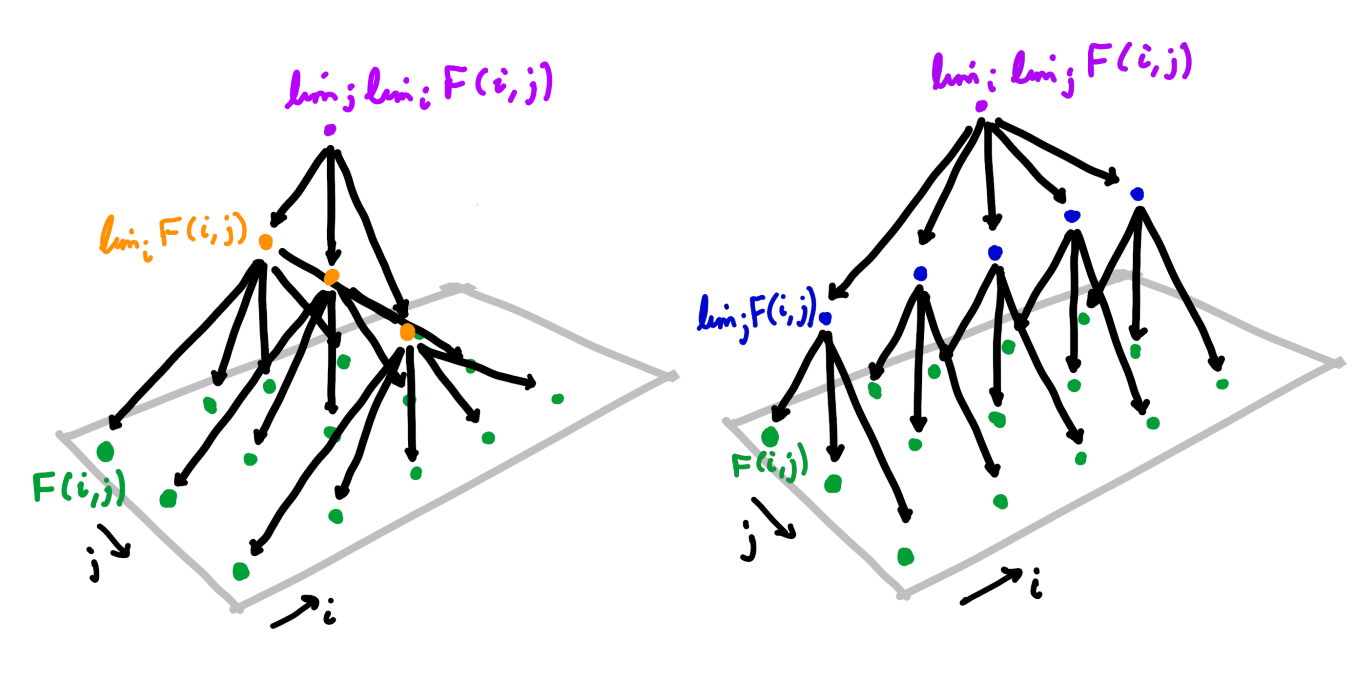 lim_j lim_i F(i,j)
lim_i F(i,j)
F(i,j)
j
i
lim_i lim_j F(i,j)
lim_j F(i,j)
F(i,j)
j
i